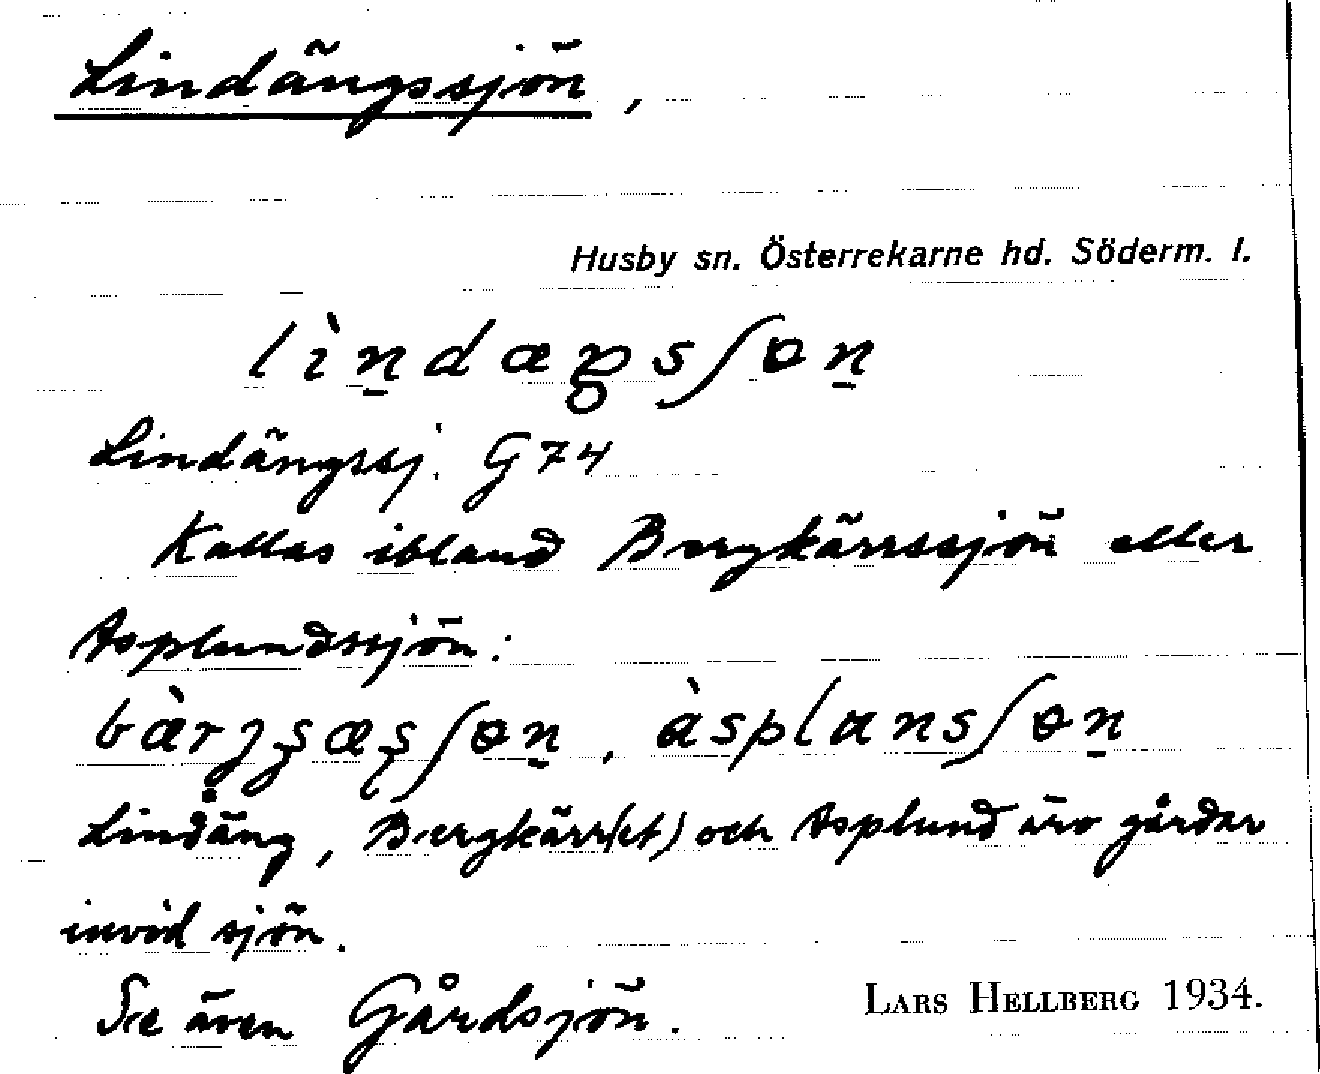 Lindängssjön,
Husby sn. Österrekarne hd. Söderm. l.
lìn̲dæŋsʃɵn̲
Lindängssj. G74
Kallas ibland Bergkärrssjön eller
Asplundssjön:
bàrʒʂæʂʃɵn̲, àsplansʃɵn̲
Lindäng, Bergkärr(et) och Asplund äro gårdar
invid sjön.
Se även Gårdsjön.
LARS HELLBERG 1934.